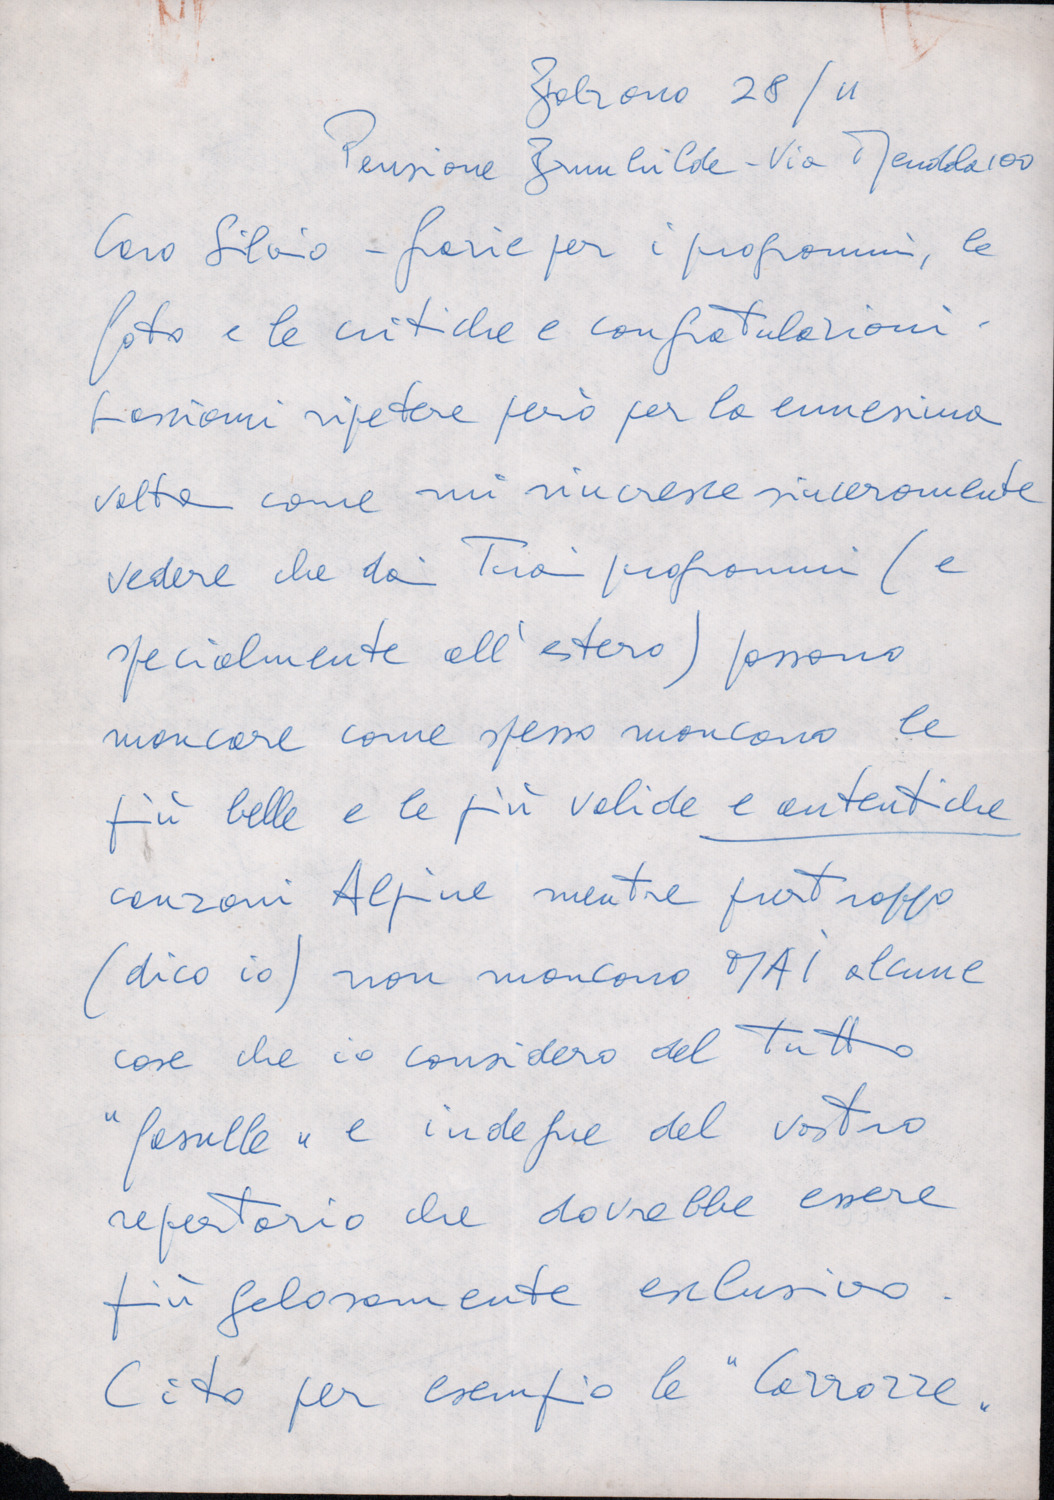 Bolzano 28/11
Pensione Brunhilde - Via Mendola 100
Caro Silvio - grazie per i programmi, le
foto e le critiche e congratulazioni.
Lasciami ripetere però per la ennesima
volta come mi rincresce sinceramente
vedere che dai Tuoi programmi (e
specialmente all'estero) possano
mancare come spesso mancano le
più belle e le più valide e autentiche
canzoni Alpine mentre purtroppo
(dico io) non mancano MAI alcune
cose che io considero del tutto
"fasulle" e indegne del vostro
repertorio che dovrebbe essere
più gelosamente esclusivo.
Cito per esempio le "Carrozze"